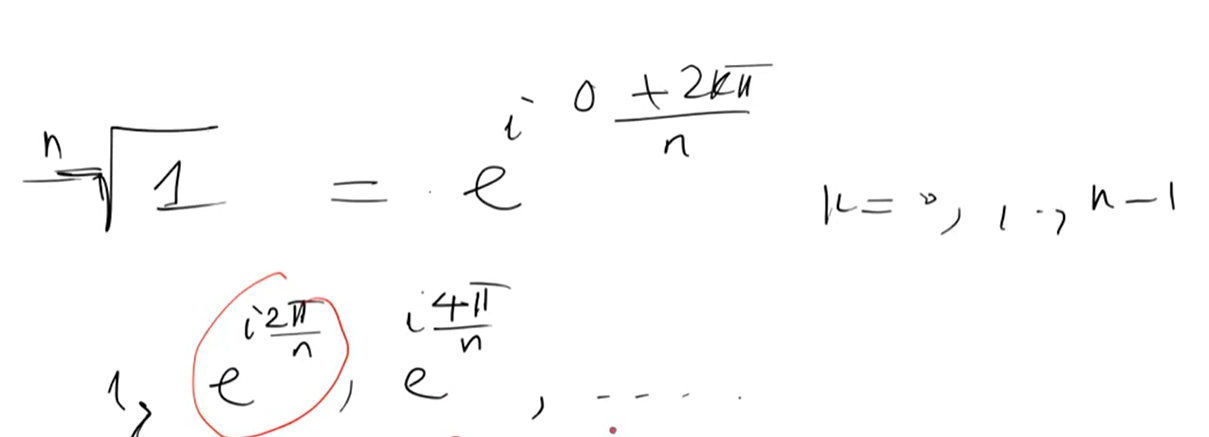 ⁿ√1 = e^{i (0 + 2kπ)/n} k = 0, 1 .., n - 1
1, e^{i 2π/n}, e^{i 4π/n}, ....